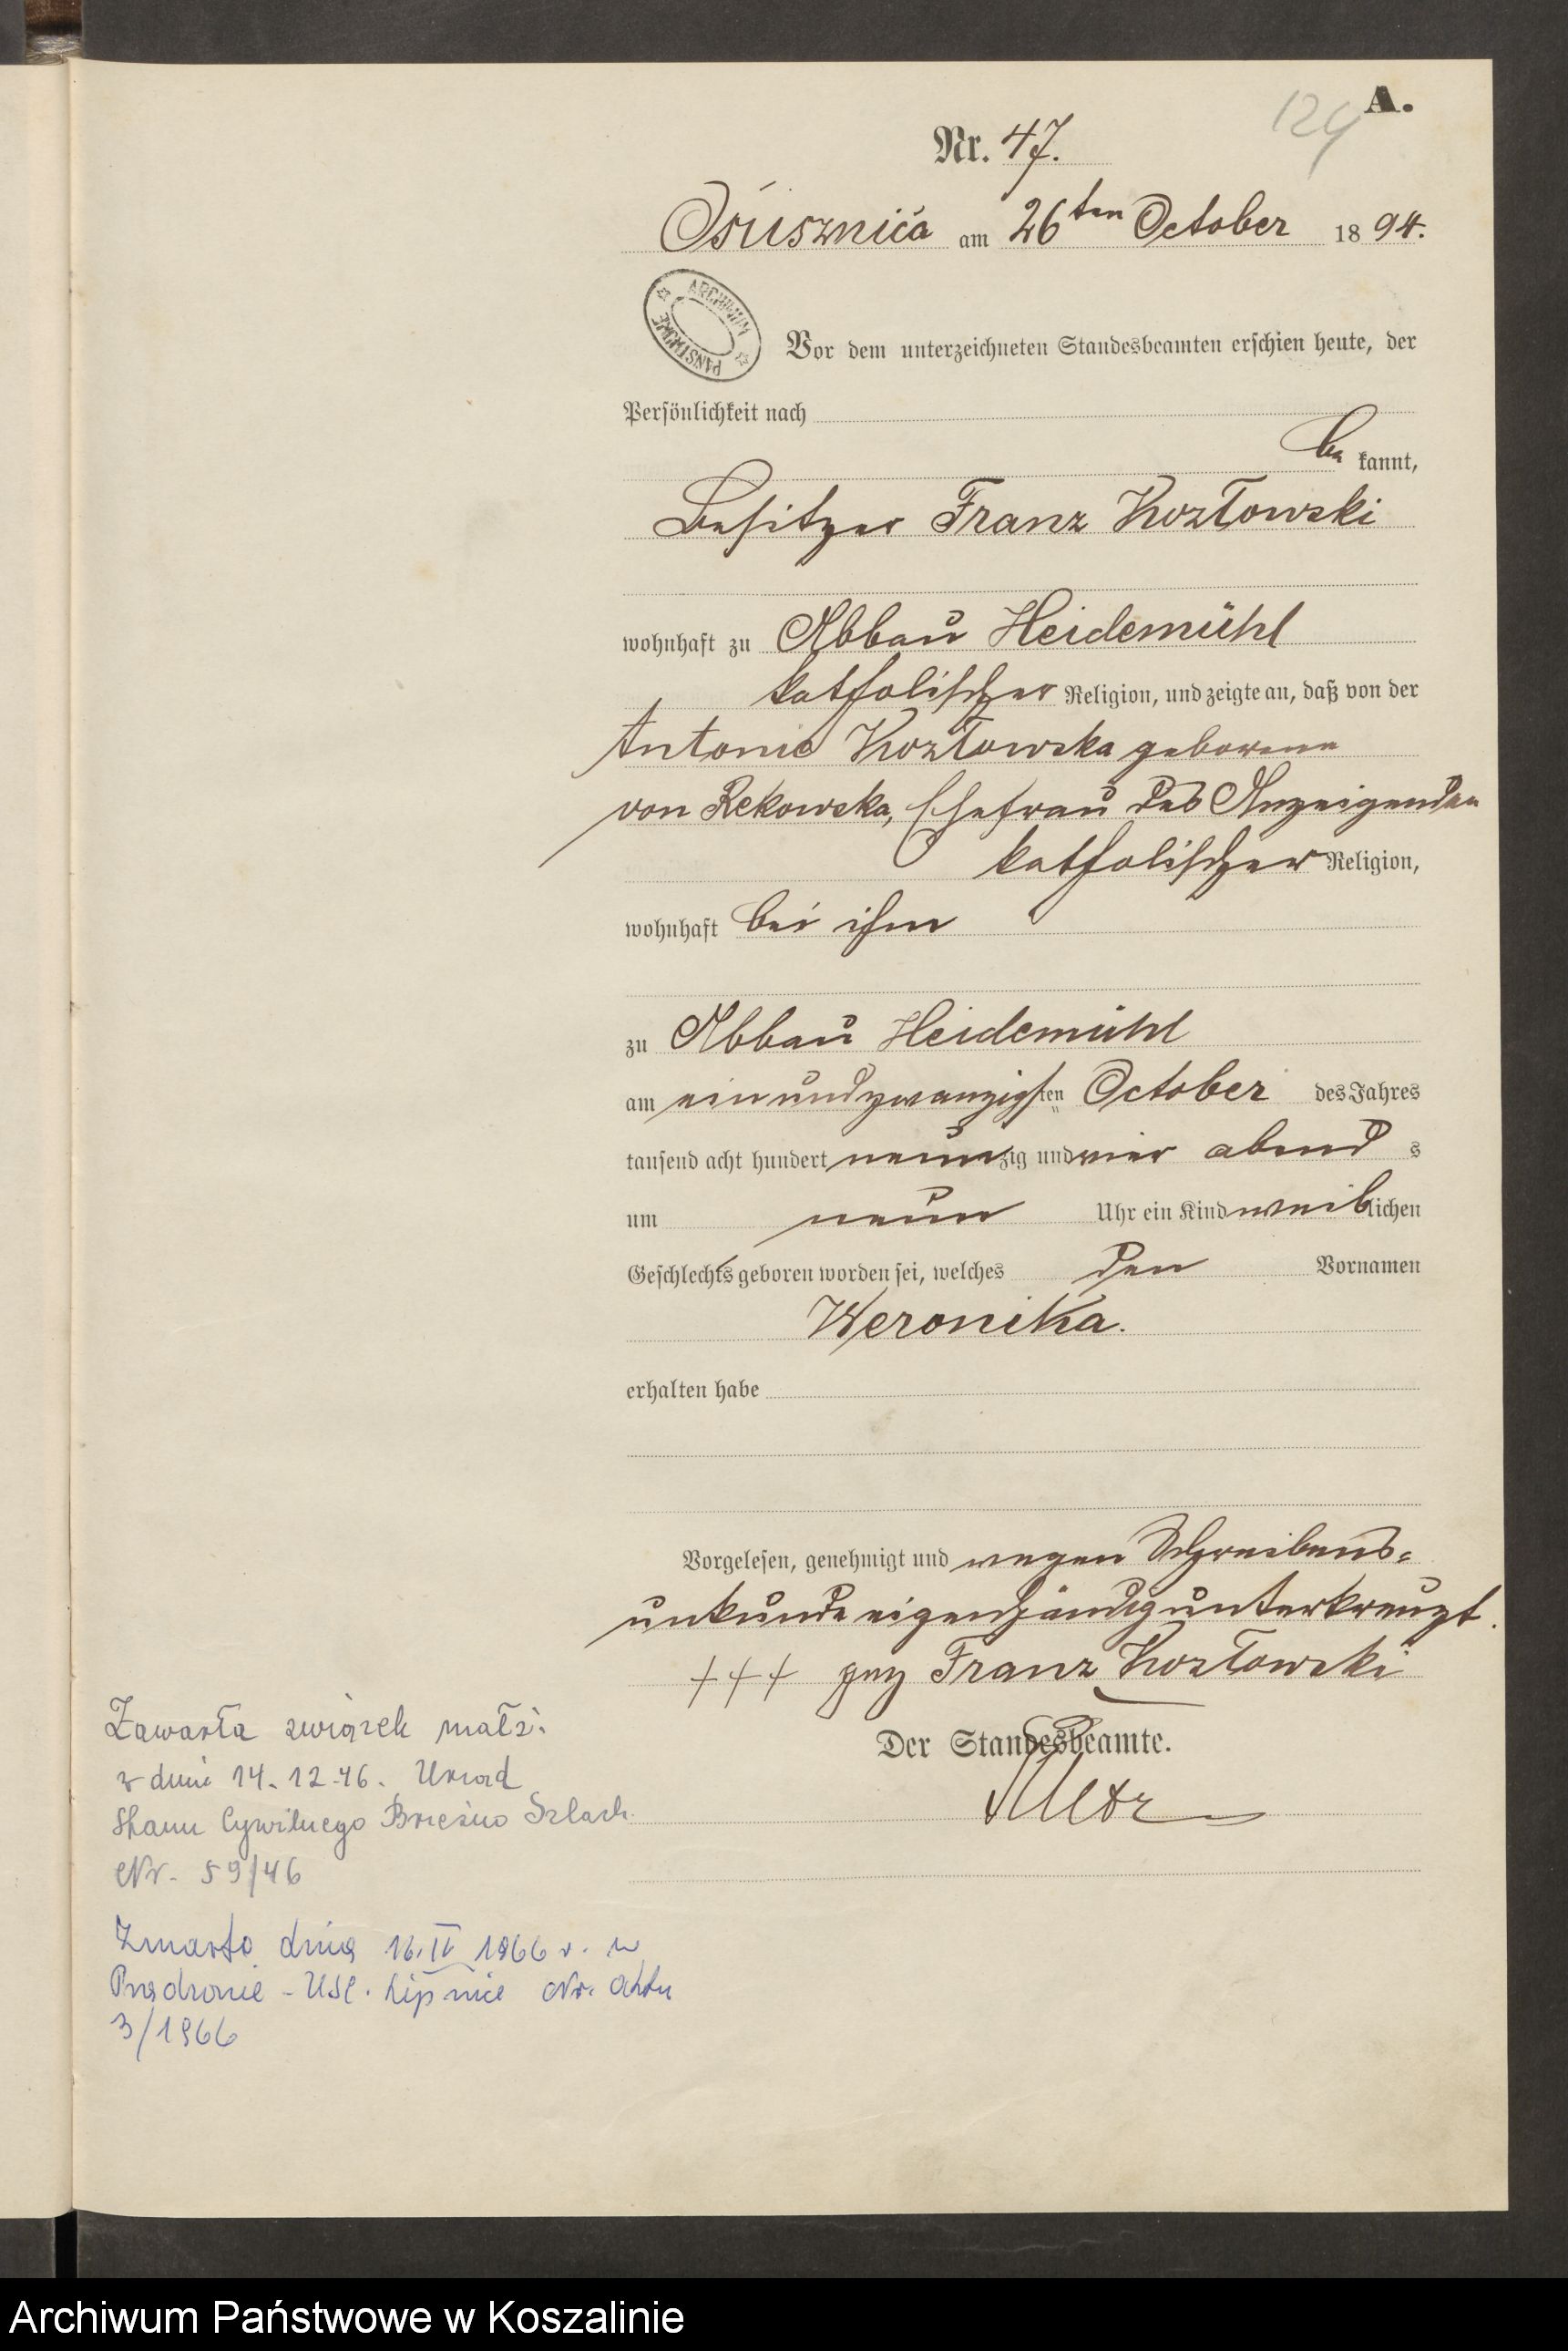 A.
124
Nr. 47.
Osusznica am 26ten October 1894.
ARCHIWUM PAŃSTWOWE
Vor dem unterzeichneten Standesbeamten erschien heute, der
Persönlichkeit nach
be kannt,
Besitzer Franz Kozłowski
wohnhaft zu Abbau Heidemühl
katholischer Religion, und zeigte an, daß von der
Antonie Kozłowska geborene
von Rekowska, Ehefrau des Anzeigenden
katholischer Religion,
wohnhaft bei ihm
zu Abbau Heidemühl
am einundzwanzigsten October des Jahres
tausend acht hundert neunzig und vier abend s
um neun Uhr ein Kind weiblichen
Geschlechts geboren worden sei, welches den Vornamen
Weronika.
erhalten habe
Vorgelesen, genehmigt und wegen Schreibens-
unkunde eigenhändig unterkreuzt.
+++ gez Franz Kozłowski
Der Standesbeamte.
Zawarła związek małż.
w dniu 14.12.46. Urząd
Stanu Cywilnego Brzeźno Szlach.
Nr. 59/46
Zmarła dnia 16.IV 1966 r. w
Prądzonie - USC. Lipnica Nr. aktu
3/1966
Archiwum Państwowe w Koszalinie